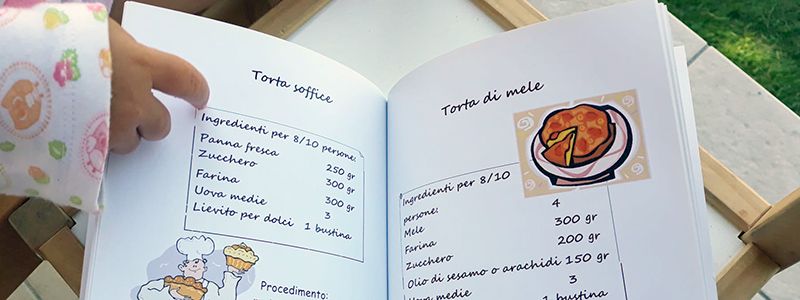 Torta soffice
Ingredienti per 8/10 persone:
Panna fresca 250 gr
Zucchero 300 gr
Farina 300 gr
Uova medie 3
Lievito per dolci 1 bustina
Procedimento:
Torta di mele
Ingredienti per 8/10
persone:
Mele 4
Farina 300 gr
Zucchero 200 gr
Olio di sesamo o arachidi 150 gr
Uova medie 3
1 bustina